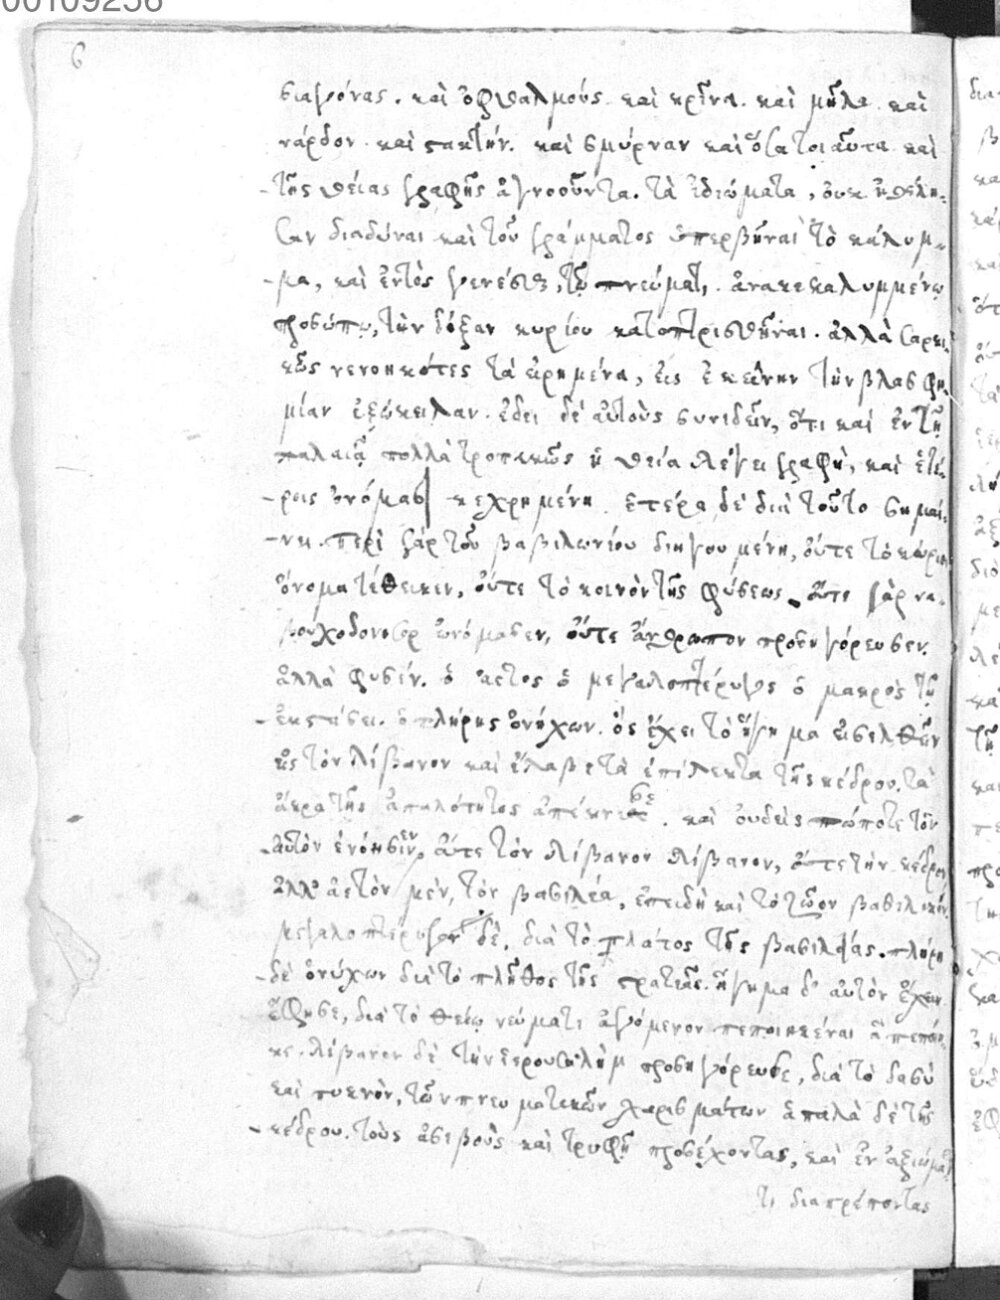 00109256
6
σιαγόνας. καὶ ὀφθαλμούς. καὶ κρῖνα. καὶ μῆλα. καὶ
νάρδον. καὶ στακτήν. καὶ σμύρναν καὶ ὅσα τοιαῦτα. καὶ
τῆς θείας γραφῆς ἀγνοοῦντα. τὰ ἰδιώματα, οὐκ ἠθέλη-
σαν διαδῦναι καὶ τοῦ γράμματος ὑπερβῆναι τὸ κάλυμ-
μα, καὶ ἐντὸς γενέσθαι, τῷ πνεύματι. ἀνακεκαλυμμένῳ
προσώπῳ, τὴν δόξαν κυρίου κατοπτρισθῆναι. ἀλλὰ σαρκι-
κῶς νενοηκότες τὰ εἰρημένα, εἰς ἐκείνην τὴν βλασφη-
μίαν ἐξώκειλαν. ἔδει δὲ αὐτοὺς συνιδεῖν, ὅτι καὶ ἐν τῇ
παλαιᾷ πολλὰ τροπικῶς ἡ θεία λέγει γραφὴ, καὶ ἑτέ-
ροις ὀνόμασι κεχρημένη ἑτέρα δὲ διὰ τοῦτο σημαί-
νει. περὶ γὰρ τοῦ βαβυλωνίου διηγουμένη, οὔτε τὸ κύριον
ὄνομα τέθεικεν, οὔτε τὸ κοινὸν τῆς φύσεως. οὔτε γὰρ να-
βουχοδονόσορ ὠνόμασεν, οὔτε ἄνθρωπον προσηγόρευσεν.
ἀλλὰ φησίν. ὁ ἀετὸς ὁ μεγαλοπτέρυγος ὁ μακρὸς τῇ
ἐκστάσει. ὁ πλήρης ὀνύχων. ὃς ἔχει τὸ ἥγημα εἰσελθεῖν
εἰς τὸν λίβανον καὶ ἔλαβε τὰ ἐπίλεκτα τῆς κέδρου. τὰ
ἄκρα τῆς ἁπαλότητος ἀπέκνισε. καὶ οὐδεὶς πώποτε τὸν
αὐτὸν ἐνόησεν, οὔτε τὸν λίβανον λίβανον, οὔτε τὴν κέδρον
ἀλλ' ἀετὸν μὲν, τὸν βασιλέα, ἐπειδὴ καὶ τὸ ζῶον βασιλικόν,
μεγαλοπτέρυγον δὲ, διὰ τὸ πλάτος τῆς βασιλείας. πλήρη
δὲ ὀνύχων διὰ τὸ πλῆθος τῆς στρατιᾶς. ἥγημα δ' αὐτὸν ἔχειν
ἔφησε, διὰ τὸ θείῳ νεύματι ἀγόμενον πεποιηκέναι ἃ πεποίη-
κε. λίβανον δὲ τὴν ἱερουσαλὴμ προσηγόρευσε, διὰ τὸ δασὺ
καὶ πυκνὸν, τῶν πνευματικῶν χαρισμάτων ἁπαλὰ δὲ τῆς
κέδρου. τοὺς ἀσεβοῦς καὶ τρυφῇ προσέχοντας, καὶ ἐν ἀξιώμα-
τι διαπρέποντας